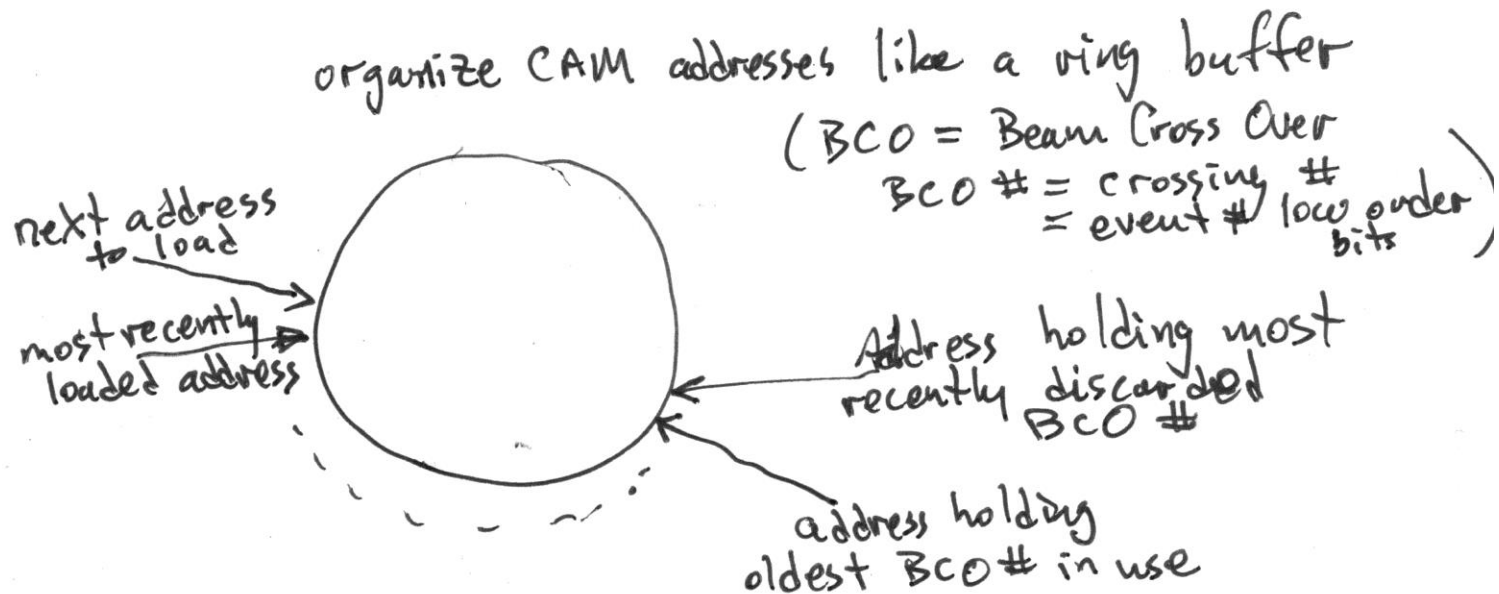 organize CAM addresses like a ring buffer
(BCO = Beam Cross Over
BCO # = crossing #
= event # low order
bits)
next address
to load
most recently
loaded address
Address holding most
recently discarded
BCO #
address holding
oldest BCO # in use